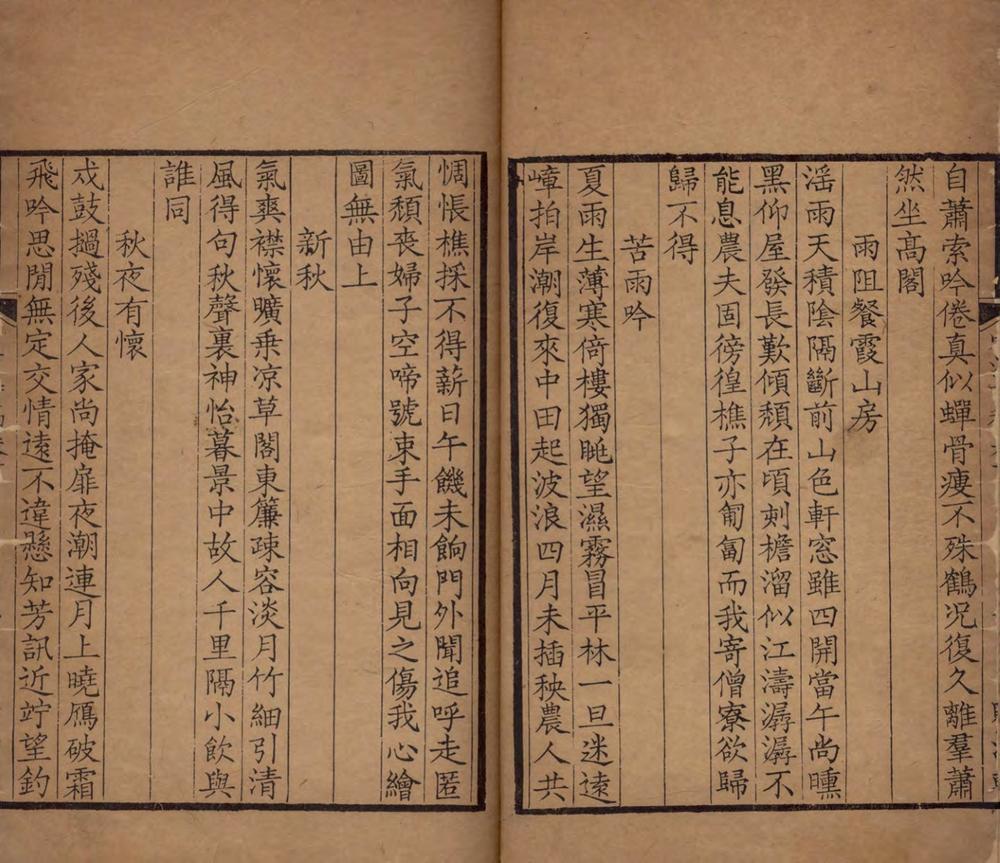 自蕭索吟倦真似蟬骨瘦不殊鶴况復久離羣蕭
然坐高閣
雨阻餐霞山房
滛雨天積隂隔斷前山色軒窓雖四開當午尚曛
黑仰屋發長歎傾頽在頃刻檐溜似江濤潺潺不
能息農夫固徬徨樵子亦匍匐而我寄僧寮欲歸
歸不得
苦雨吟
夏雨生薄寒倚樓獨眺望濕霧冒平林一旦迷遠
嶂拍岸潮復來中田起波浪四月未插秧農人共
惆悵樵採不得薪日午饑未餉門外聞追呼走匿
氣頽喪婦子空啼號束手面相向見之傷我心繪
圖無由上
新秋
氣爽襟懷曠乗凉草閣東簾疎容淡月竹細引清
風得句秋聲裏神怡暮景中故人千里隔小飲與
誰同
秋夜有懷
戍鼓撾殘後人家尚掩扉夜潮連月上曉鴈破霜
飛吟思閒無定交情遠不違懸知芳訊近竚望釣